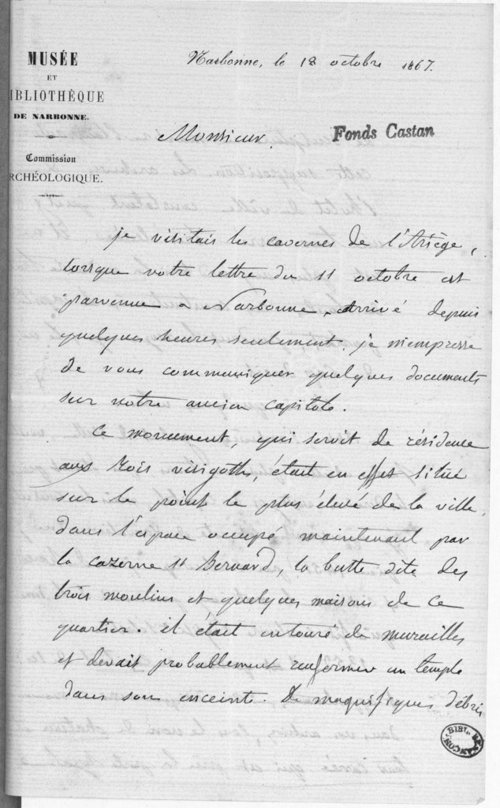 MUSÉE
ET
BIBLIOTHÈQUE
DE NARBONNE.
Commission
ARCHÉOLOGIQUE.
Narbonne, le 18 octobre 1867.
Monsieur
Fonds Castan
je visitais les cavernes de l'Ariège,
lorsque votre lettre du 11 octobre est
parvenue à Narbonne. Arrivé depuis
quelques heures seulement, je m'empresse
de vous communiquer quelques documents
sur notre ancien capitole.
Ce monument, qui servit de résidence
aux Rois visigoths, était en effet situé
sur le point le plus élevé de la ville,
dans l'espace occupé maintenant par
la cazerne St Bernard, la butte dite des
trois moulins et quelques maisons de ce
quartier. il était entouré de murailles
et devait probablement renfermer un temple
dans son enceinte. De magnifiques débris